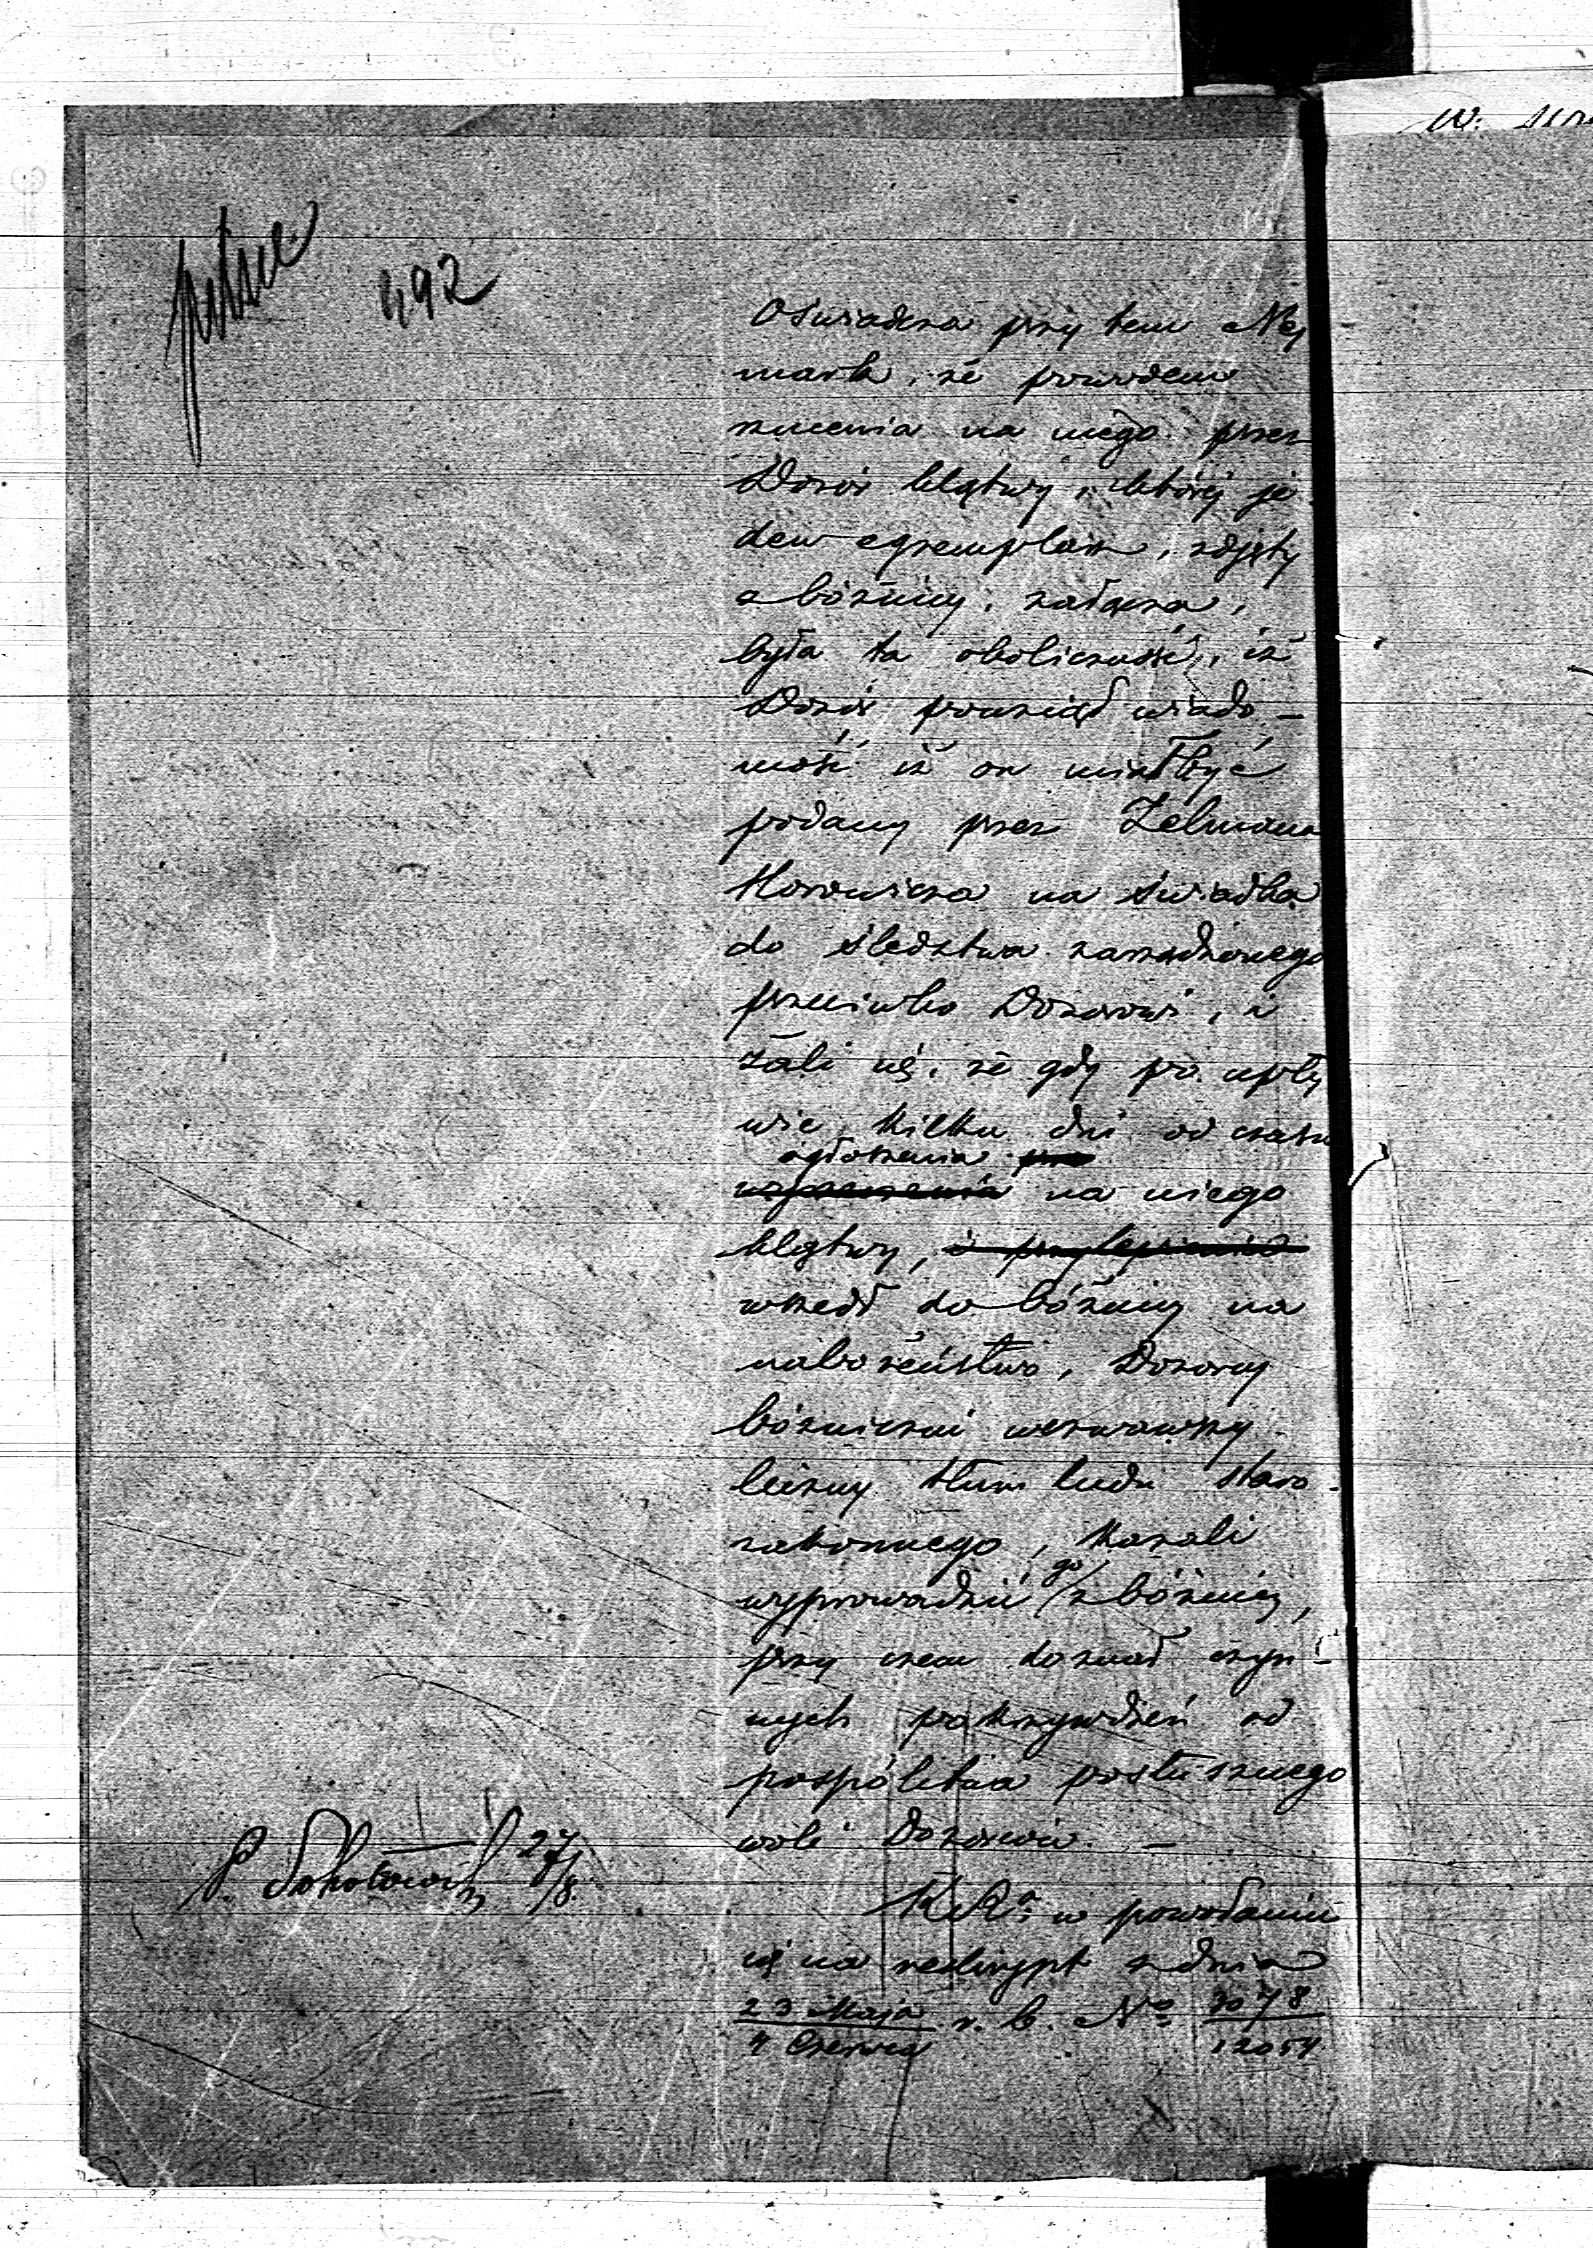 492
Oświadcza przy tem Ney
mark, że powodem
rzucenia na niego przez
Dozór klątwy, której je
den egzemplarz, zdjęty
z bóżnicy, załącza,
była ta okoliczność, iż
Dozór powziął wiado-
mość iż on miał być
podany przez Zelmana
Horowicza na świadka
do śledztwa zarządzonego
przeciwko Dozorowi, i
żali się, że gdy po upły
wie kilku dni od czasu
ogłoszenia
na niego
klątwy, i przylepienia
wszedł do bóżnicy na
nabożeństwo, Dozorcy
bóżniczni wezwawszy
liczny tłum ludu staro-
zakonnego, kazali
wyprowadzić go z bóżnicy,
przy czem doznał czyn-
nych pokrzywdzeń od
pospólstwa posłusznego
woli Dozorców. —
K. R. w powołaniu
się na reskrypt z dnia
23 Maja / 4 Czerwca r. b. No 3078 / 12054
P. Sokołowski 27/8